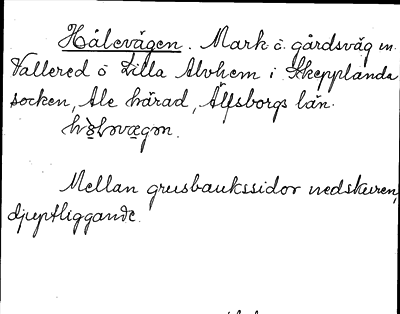 Hålevägen. Mark o. gårdsväg m.
Vallered o Lilla Alvhem i Skepplanda
socken, Ale härad, Älfsborgs län.
Mellan grusbankssidor nedskuren,
djuptliggande.